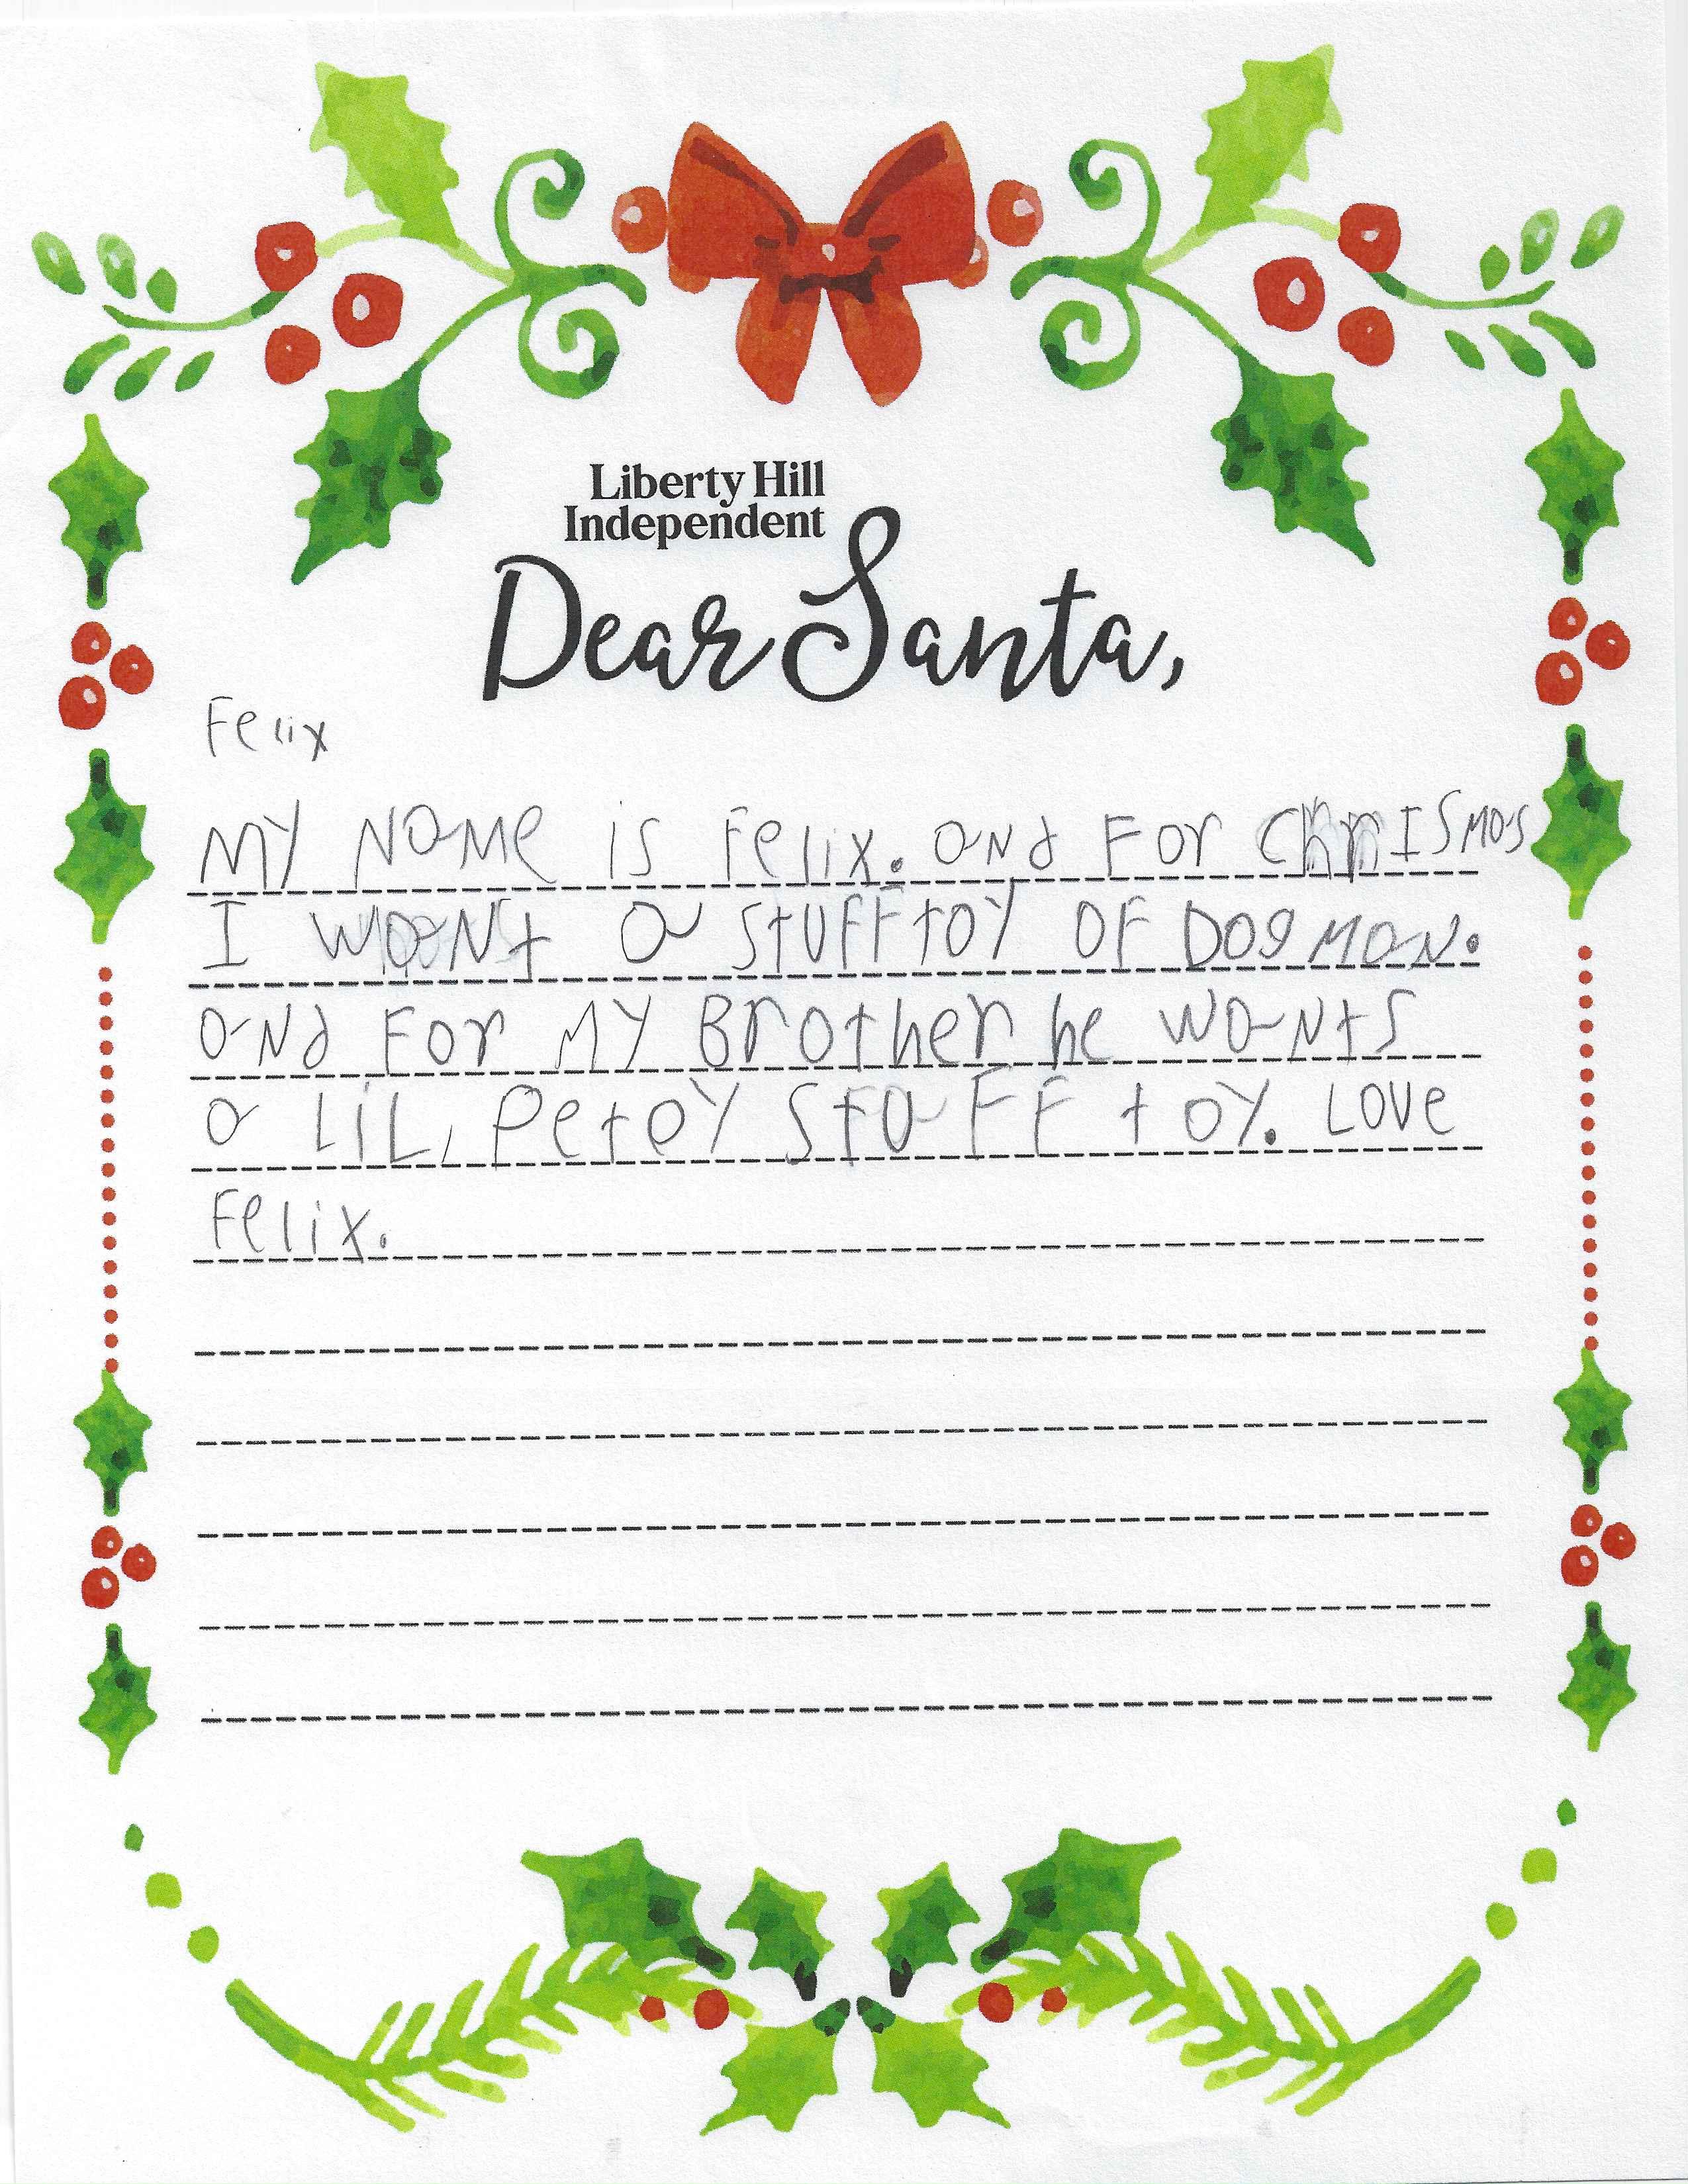 Liberty Hill
Independent
Dear Santa,
Felix
MY NaMe is Felix. aNd For ChrISMas
I waNt a stuFF toy OF DOgMaN.
aNd For MY Brother he waNts
a LiL, Petey StaFF toy. Love
Felix.